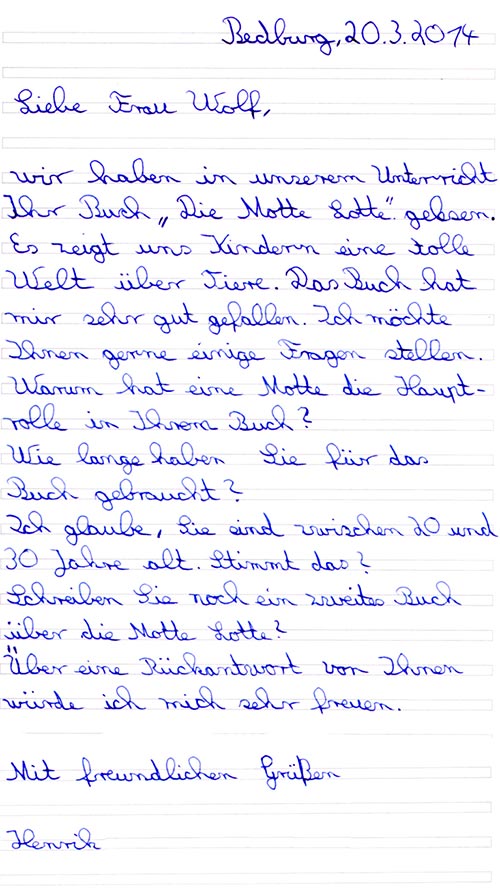 Bedburg, 20.3.2014
Liebe Frau Wolf,
wir haben in unserem Unterricht
Ihr Buch „Die Motte Lotte" gelesen.
Es zeigt uns Kindern eine tolle
Welt über Tiere. Das Buch hat
mir sehr gut gefallen. Ich möchte
Ihnen gerne einige Fragen stellen.
Warum hat eine Motte die Haupt-
rolle in Ihrem Buch?
Wie lange haben Sie für das
Buch gebraucht?
Ich glaube, Sie sind zwischen 20 und
30 Jahre alt. Stimmt das?
Schreiben Sie noch ein zweites Buch
über die Motte Lotte?
Über eine Rückantwort von Ihnen
würde ich mich sehr freuen.
Mit freundlichen Grüßen
Henrik